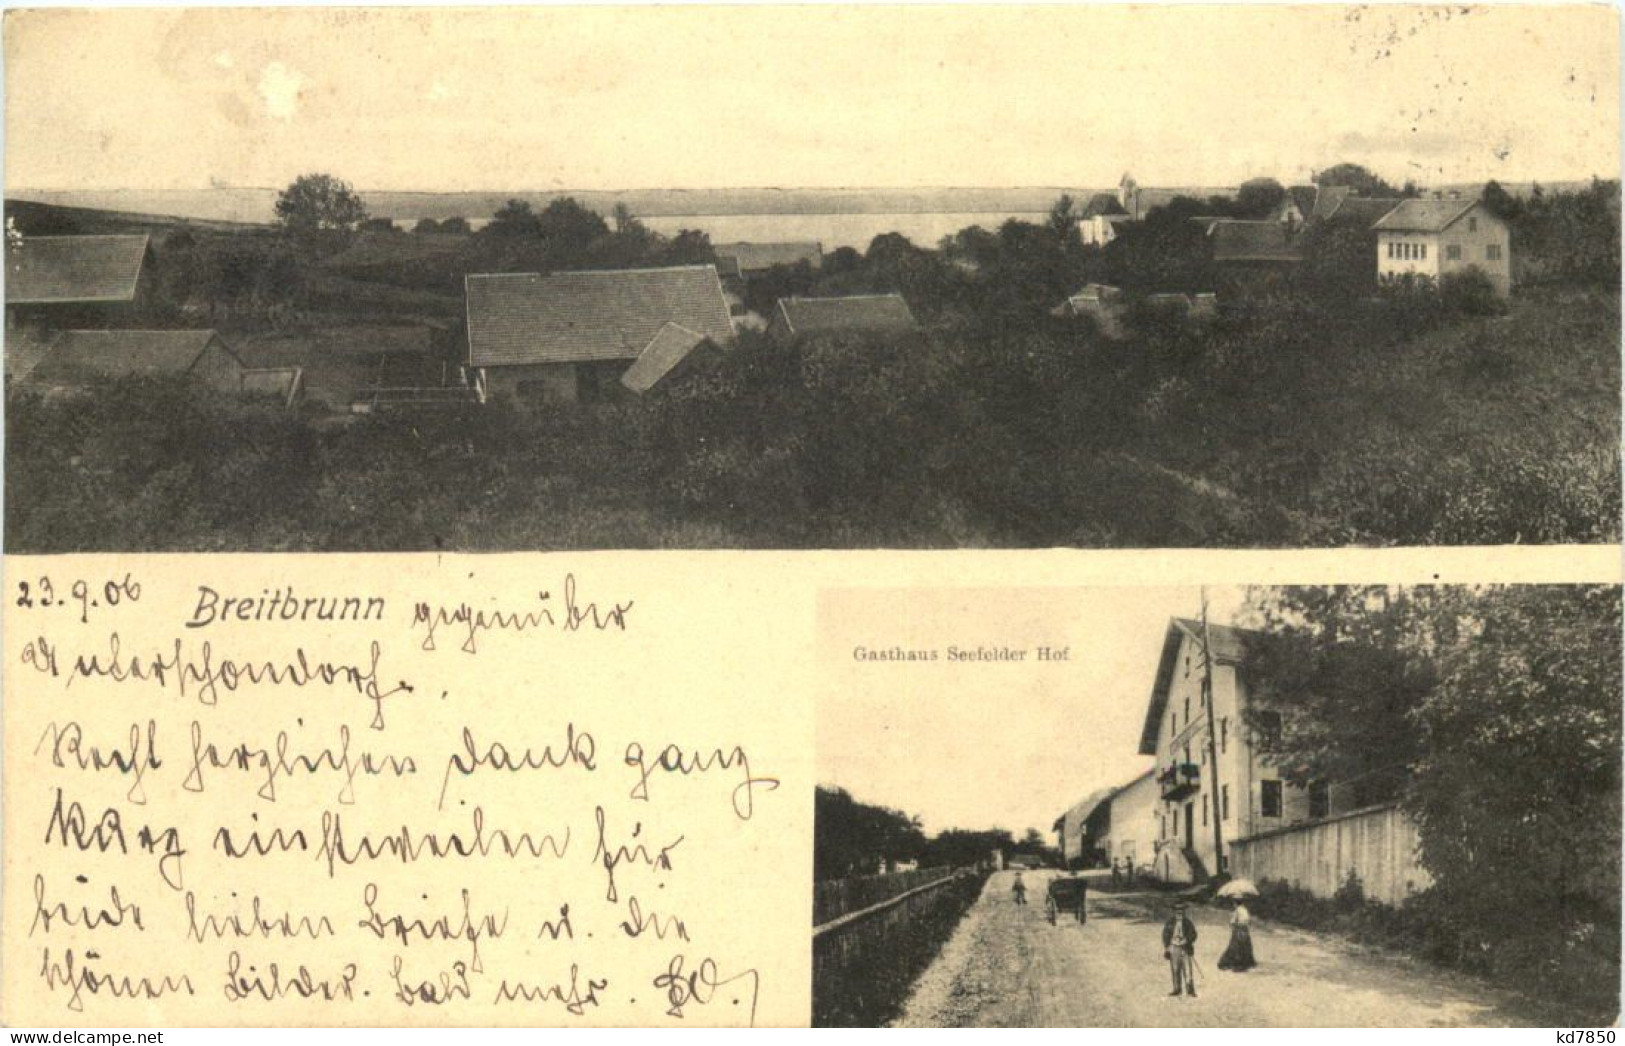 23.9.06 Breitbrunn gegenüber
Unterschondorf.
Gasthaus Seefelder Hof
Recht herzlichen Dank ganz
kurz einstweilen für
beide lieben Briefe u. die
schönen Bilder. Bald mehr.
kd7850